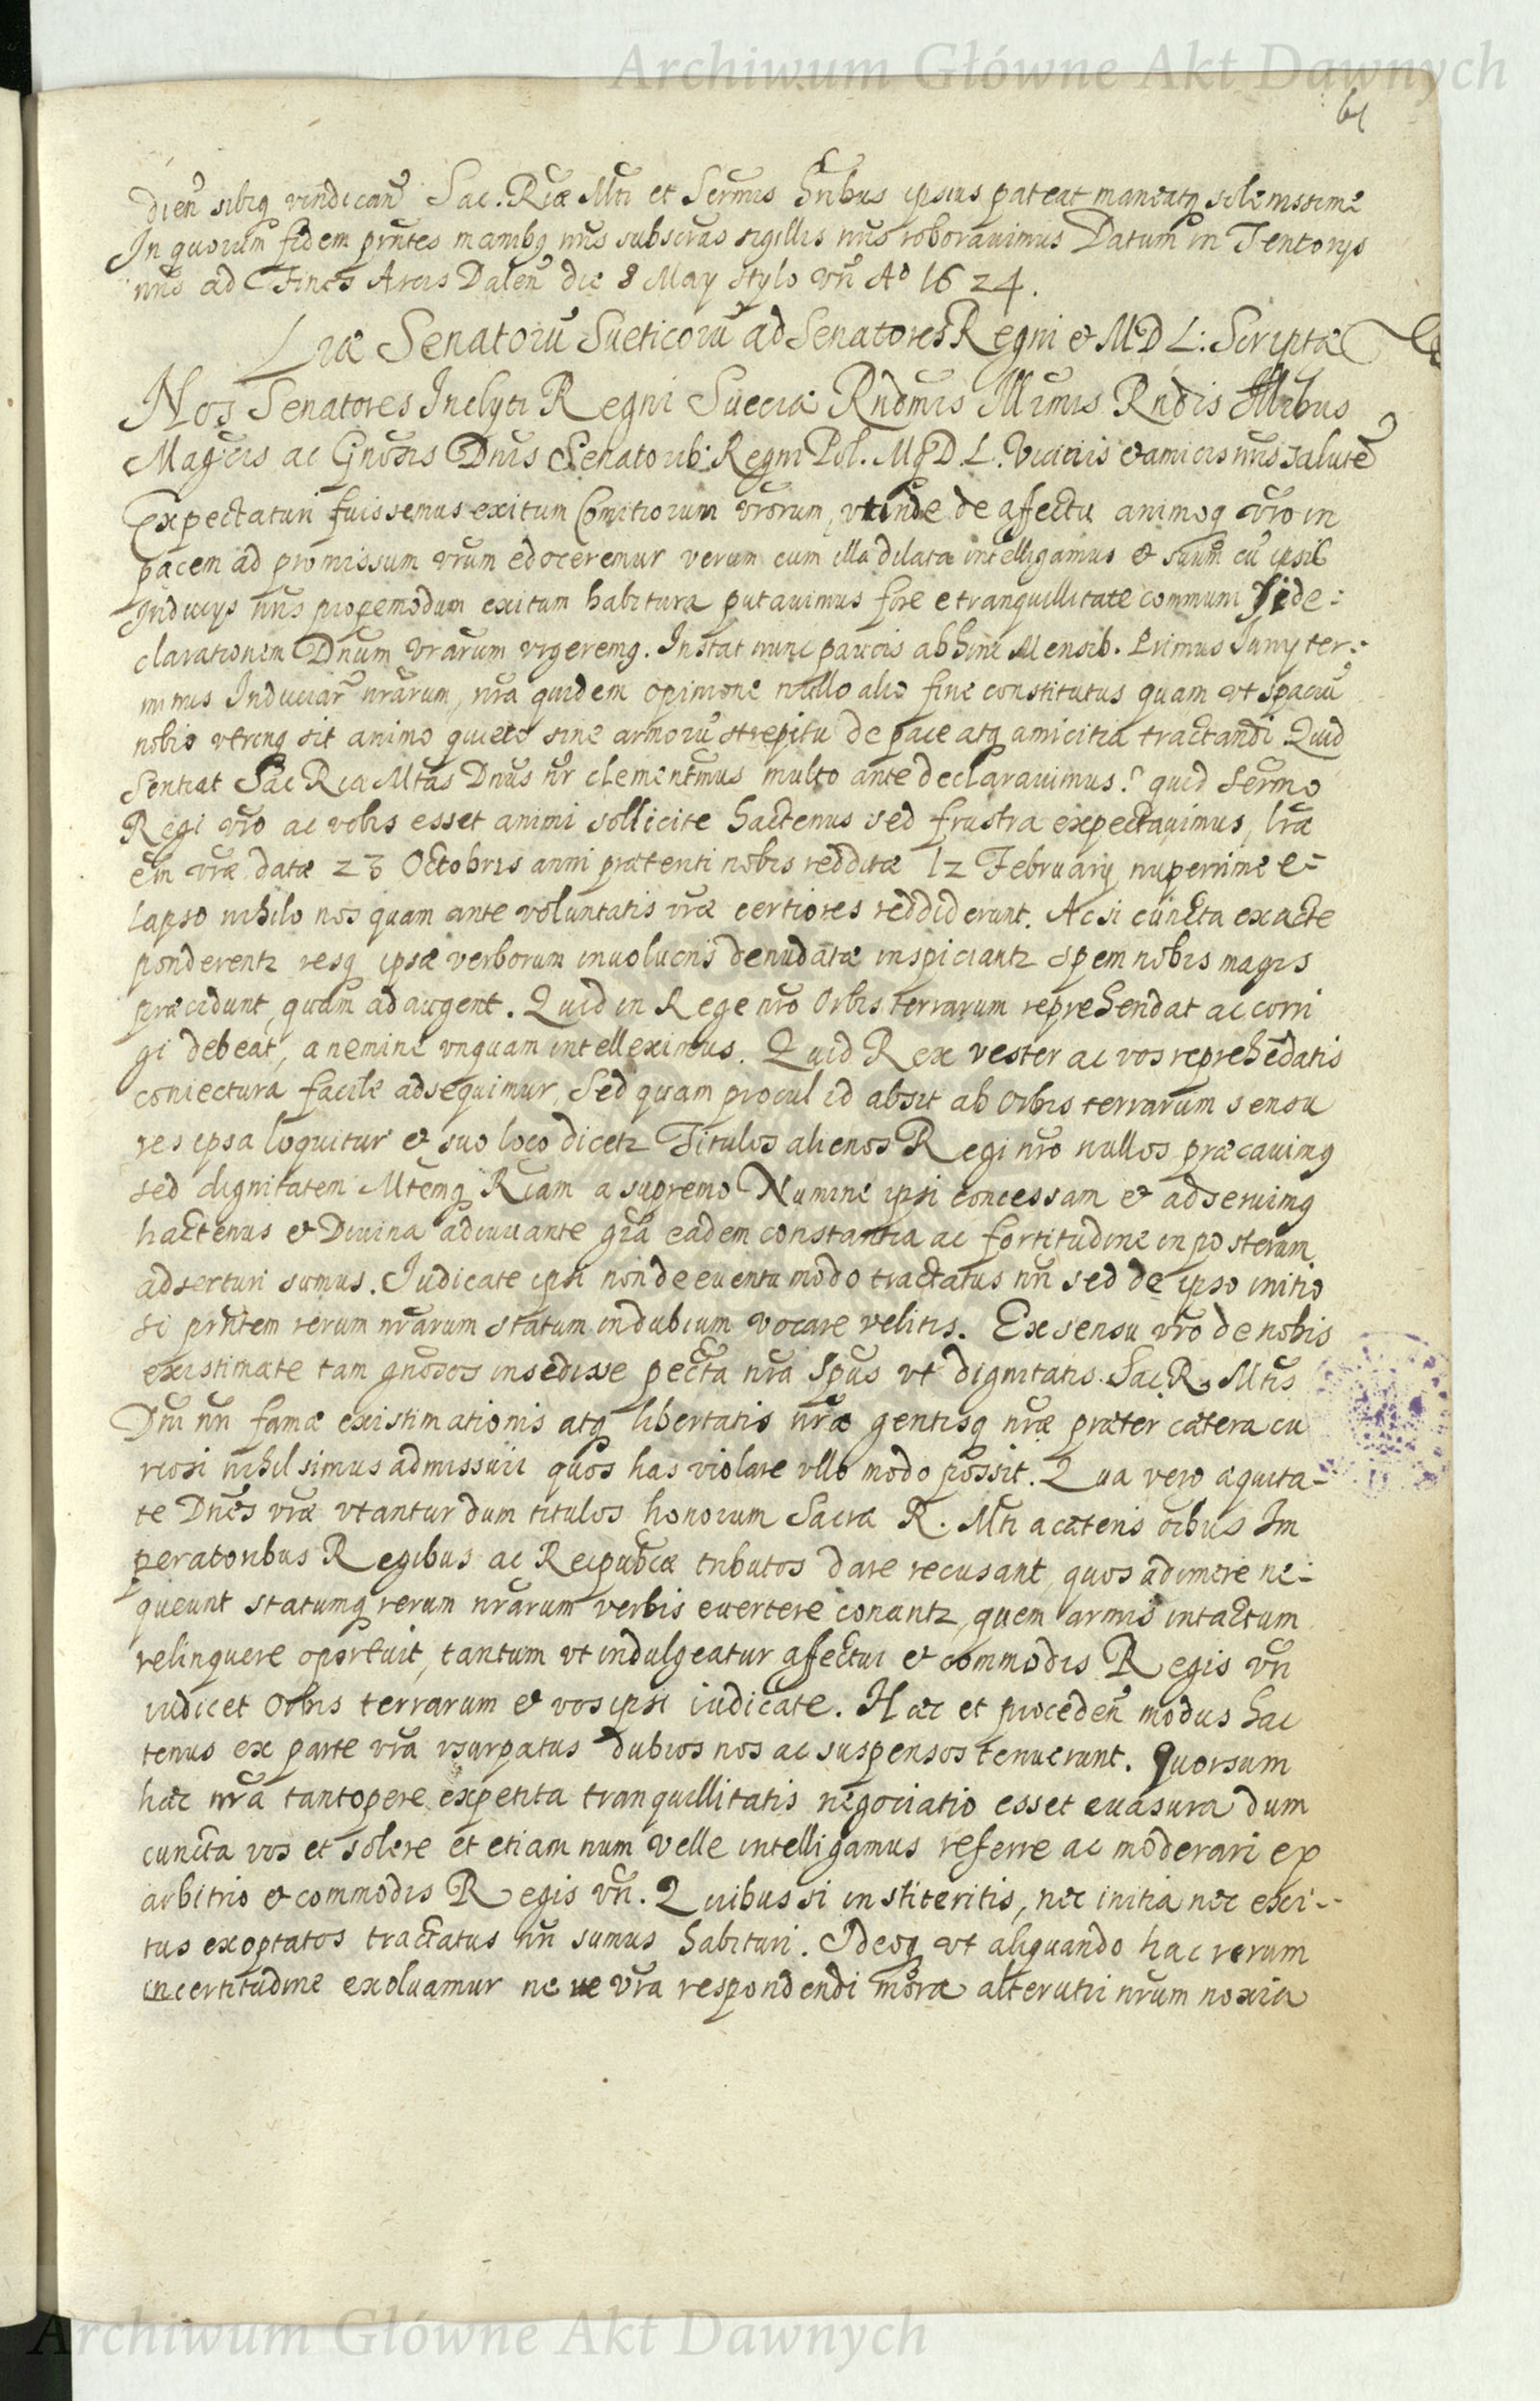 Archiwum Główne Akt Dawnych
61
dien̄ sibiq vindican̄ Sac. Riæ Mti et Sermis hribus ipsius pateat maneatq solenissime
In quorum fidem prñtes manibq nris subscras sigillis nris roborauimus Datum in Tentorys
nris ad Fines Arcis Dalen̄ die 8 May stylo vri Ao 1624.
Lræ Senatorū Sueticorū ad Senatores Regni et M D L: Scriptæ
Nos Senatores Inclyti Regni Sueciæ Rndmis Illmis Rndis Illribus
Magcis ac Gnosis Dnis Senatorib: Regni Pol. MqD. L. Vicinis et amicis nris salutē
Expectaturi fuissemus exitum Comitiorum vrorum, vt inde de afectu animoq vro in
pacem ad promissum vrum edoceremur verum cum illa dilata intelligamus et suum cū ipsis
Inducys nris propemodum exitum habitura putauimus fore e tranquillitate communi si de:
clarationem Dnum Vrarum vrgeremq. Instat nunc paucis ab hinc Mensib. Primus Juny ter:
minus Induciar nrarum, nra quidem opinione nullo alio fine constitutus quam vt spaciū
nobis vtrinq sit animo quieto sine armorū strepitu de pace atq amicitia tractandi Quid
Sentiat Sac Ria Mtas Dnus nr clementmus multo ante declarauimus? quid Sermo
Regi vro ac vobis esset animi sollicite hactenus sed frustra expectauimus, lræ
em vræ datæ 23 Octobris anni præteriti nobis redditæ 12 February nuperrime e-
lapso nihilo nos quam ante voluntatis vræ certiores reddiderunt. Ac si cuncta exacte
ponderentz resq ipsæ verborum inuolucris denudatæ inspiciantz spem nobis magis
præcidunt, quam adaugent. Quid in Rege nro Orbis terrarum reprehendat ac corri
gi debeat, a nemine vnquam intelleximus. Quid Rex vester ac vos reprehēdatis
coniectura facile adsequimur, Sed quam procul id absit ab Orbis terrarum sensu
res ipsa loquitur et suo loco dicetz Titulos alienos Regi nro nullos præcauimq
sed dignitatem Mtemq Riam a supremo Numine ipsi concessam et adseruimq
hactenus et Diuina adiuuante gra eadem constantia ac fortitudine in posterum
adserturi sumus. Iudicate ipsi non de euentu modo tractatus nri sed de ipso initio
si prñtem rerum nrarum statum in dubium vocare velitis. Ex sensu vro de nobis
existimate tam gnosos insedisse pecta nra Spus vt dignitatis Sac. R. Mtis
Dni nri famæ existimationis atq libertatis nræ gentisq nræ præter cætera cu
riosi nihil simus admissuri quos has violare vllo modo possit. Qua vero æquita-
te Dnes vræ vtantur dum titulos honorum Sacræ R. Mti a cæteris oibus Im
peratoribus Regibus ac Reipubcæ tributos dare recusant, quos adimere ne-
queunt statumq rerum nrarum verbis euertere conantz, quem armis intactum
relinquere oportuit, tantum vt indulgeatur afectui et commodis Regis vri
iudicet Orbis terrarum et vos ipsi iudicate. Hæc et proceden̄ modus hac
tenus ex parte vra vsurpatus dubios nos ac suspensos tenuerunt. Quorsum
hæc nra tantopere expetita tranquillitatis negociatio esset euasura dum
cuncta vos et solere et etiam num velle intelligamus referre ac moderari ex
arbitrio et commodis Regis vri. Quibus si institeritis, nec initia nec exi-
tus exoptatos tractatus nri sumus habituri. Ideoq vt aliquando hac rerum
incertitudine exoluamur ne ve vra respondendi mora alterutri nrum noxia
Archiwum Główne Akt Dawnych